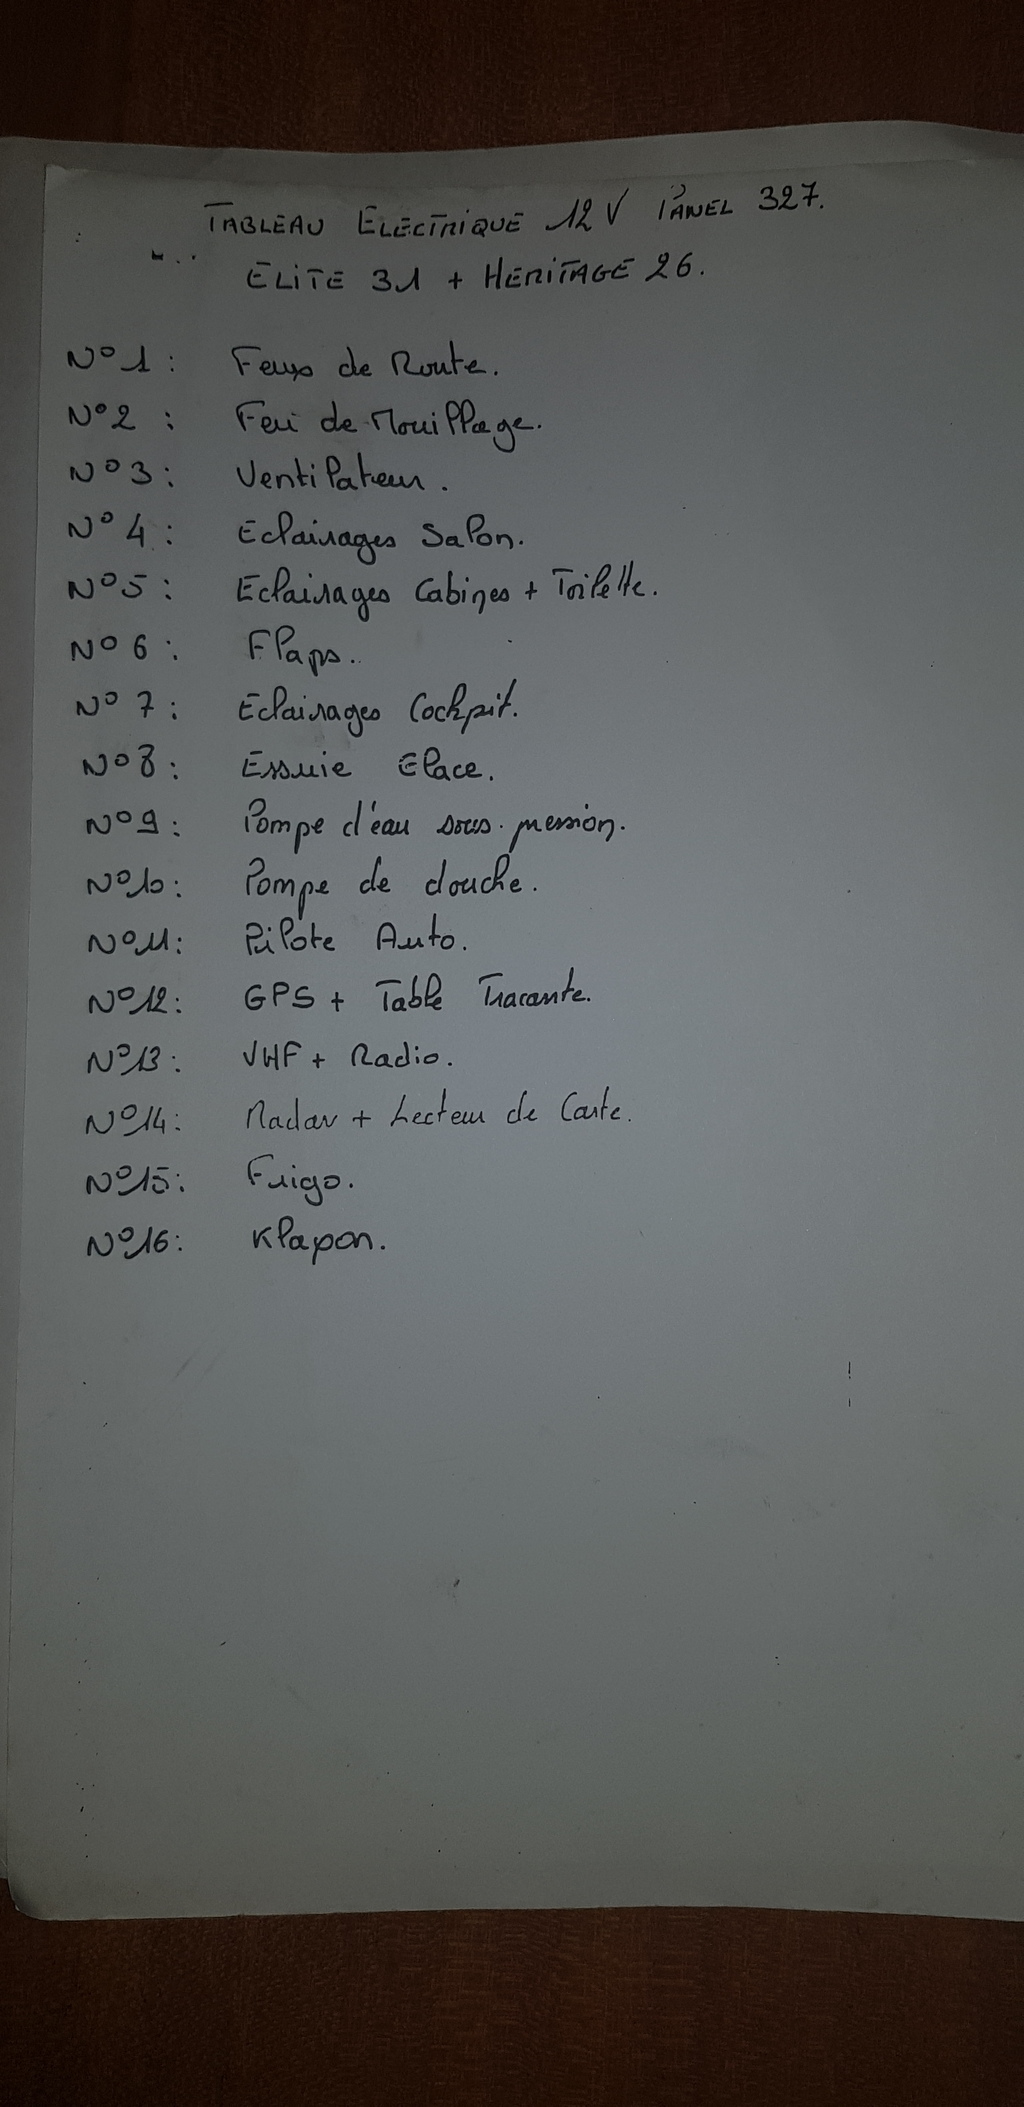 TABLEAU ELECTRIQUE 12 V PANEL 327.
ELITE 31 + HERITAGE 26.
N°1 : Feux de Route.
N°2 : Feu de Mouillage.
N°3 : Ventilateur.
N°4 : Eclairages Salon.
N°5 : Eclairages Cabines + Toilette.
N°6 : Flaps.
N°7 : Eclairages Cockpit.
N°8 : Essuie Glace.
N°9 : Pompe d'eau sous pression.
N°10 : Pompe de douche.
N°11 : Pilote Auto.
N°12 : GPS + Table Tracante.
N°13 : VHF + Radio.
N°14 : Radar + Lecteur de Carte.
N°15 : Frigo.
N°16 : Klaxon.